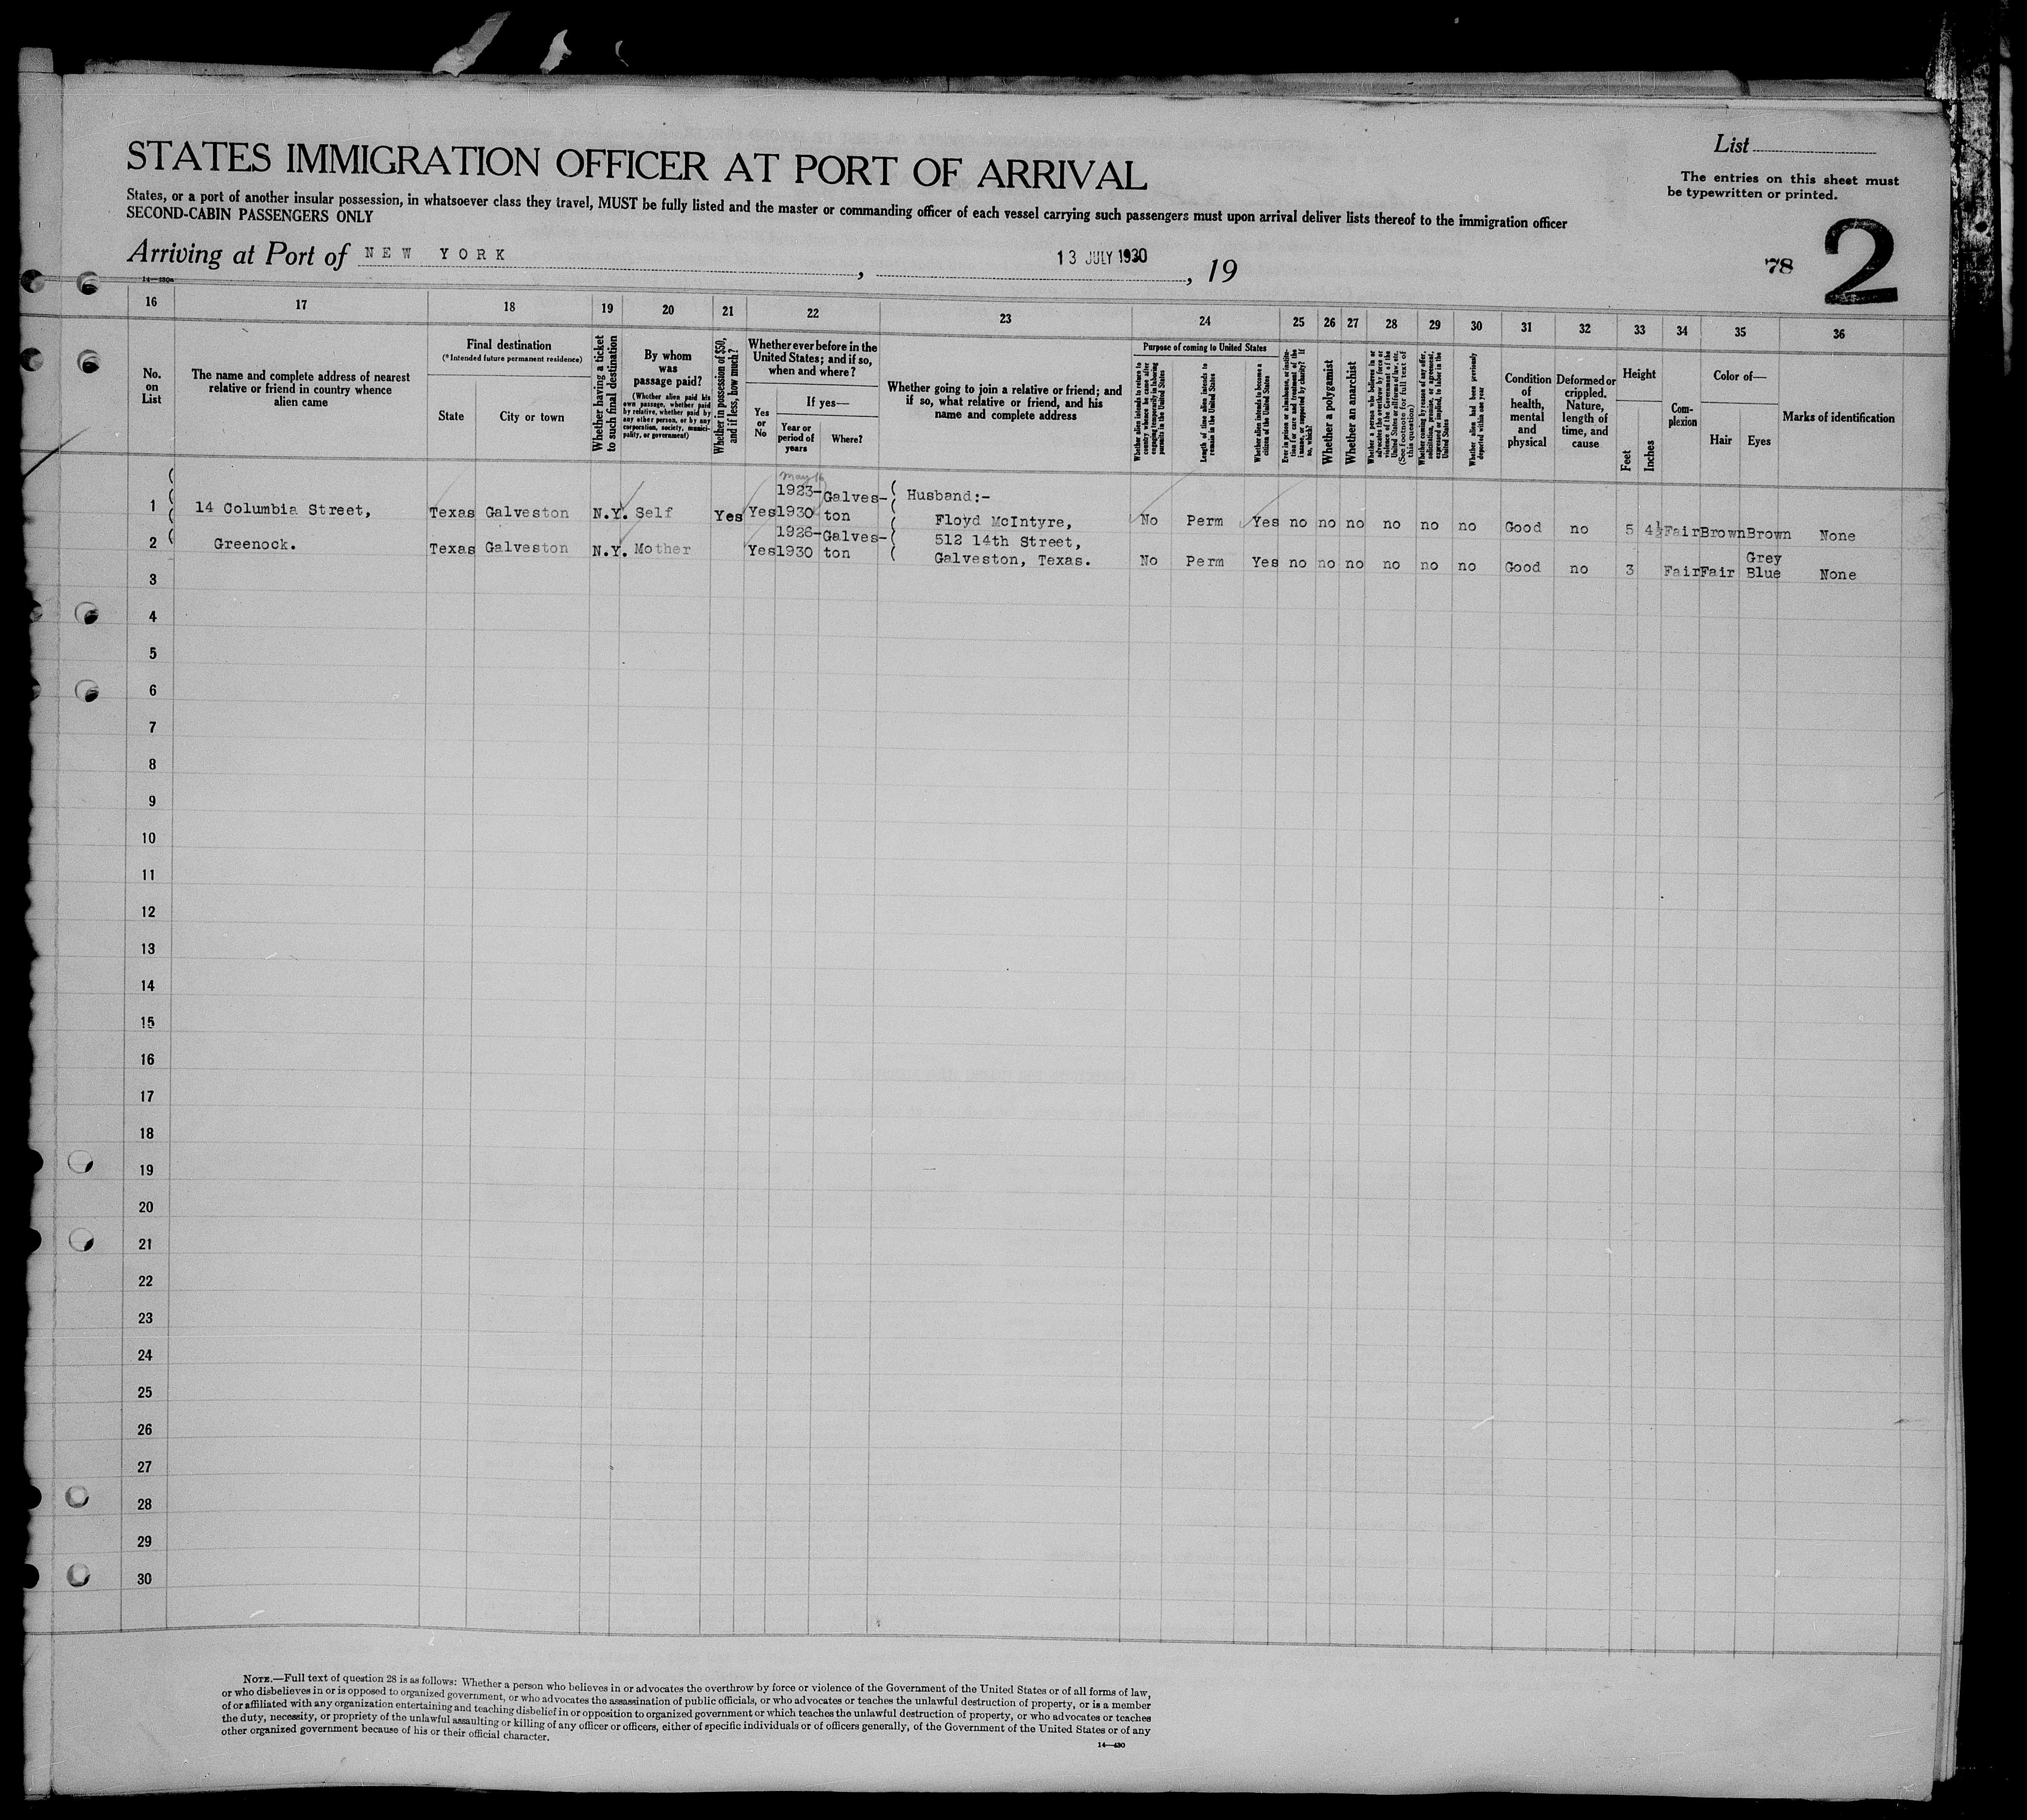 STATES IMMIGRATION OFFICER AT PORT OF ARRIVAL
List
The entries on this sheet must
be typewritten or printed.
States, or a port of another insular possession, in whatsoever class they travel, MUST be fully listed and the master or commanding officer of each vessel carrying such passengers must upon arrival deliver lists thereof to the immigration officer
SECOND-CABIN PASSENGERS ONLY
2
Arriving at Port of NEW YORK, 13 JULY 1930, 19
78
14—430a
16 17 18 19 20 21 22 23 24 25 26 27 28 29 30 31 32 33 34 35 36
No.
on
List
The name and complete address of nearest
relative or friend in country whence
alien came
Final destination
(*Intended future permanent residence)
State
City or town
Whether having a ticket
to such final destination
By whom
was
passage paid?
(Whether alien paid his
own passage, whether paid
by relative, whether paid by
any other person, or by any
corporation, society, munici-
pality, or government)
Whether in possession of $50,
and if less, how much?
Whether ever before in the
United States; and if so,
when and where?
Yes
or
No
If yes—
Year or
period of
years
Where?
Whether going to join a relative or friend; and
if so, what relative or friend, and his
name and complete address
Purpose of coming to United States
Whether alien intends to return to
country whence he came after
engaging temporarily in laboring
pursuits in the United States
Length of time alien intends to
remain in the United States
Whether alien intends to become a
citizen of the United States
Ever in prison or almshouse, or institu-
tion for care and treatment of the
insane, or supported by charity? If
so, which?
Whether a polygamist
Whether an anarchist
Whether a person who believes in or
advocates the overthrow by force or
violence of the Government of the
United States or all forms of law, etc.
(See footnote for full text of
this question.)
Whether coming by reason of any offer,
solicitation, promise, or agreement,
expressed or implied, to labor in the
United States
Whether alien had been previously
deported within one year
Condition
of
health,
mental
and
physical
Deformed or
crippled.
Nature,
length of
time, and
cause
Height
Feet
Inches
Com-
plexion
Color of—
Hair
Eyes
Marks of identification
May 16
1923- Galves- ( Husband:-
1 14 Columbia Street, Texas Galveston N.Y. Self Yes Yes 1930 ton ( Floyd McIntyre, No Perm Yes no no no no no no Good no 5 4½ Fair Brown Brown None
1926- Galves- ( 512 14th Street,
2 Greenock. Texas Galveston N.Y. Mother Yes 1930 ton ( Galveston, Texas. No Perm Yes no no no no no no Good no 3 Fair Fair Grey
Blue None
3
4
5
6
7
8
9
10
11
12
13
14
15
16
17
18
19
20
21
22
23
24
25
26
27
28
29
30
NOTE.—Full text of question 28 is as follows: Whether a person who believes in or advocates the overthrow by force or violence of the Government of the United States or of all forms of law,
or who disbelieves in or is opposed to organized government, or who advocates the assassination of public officials, or who advocates or teaches the unlawful destruction of property, or is a member
of or affiliated with any organization entertaining and teaching disbelief in or opposition to organized government or which teaches the unlawful destruction of property, or who advocates or teaches
the duty, necessity, or propriety of the unlawful assaulting or killing of any officer or officers, either of specific individuals or of officers generally, of the Government of the United States or of any
other organized government because of his or their official character.
14—430